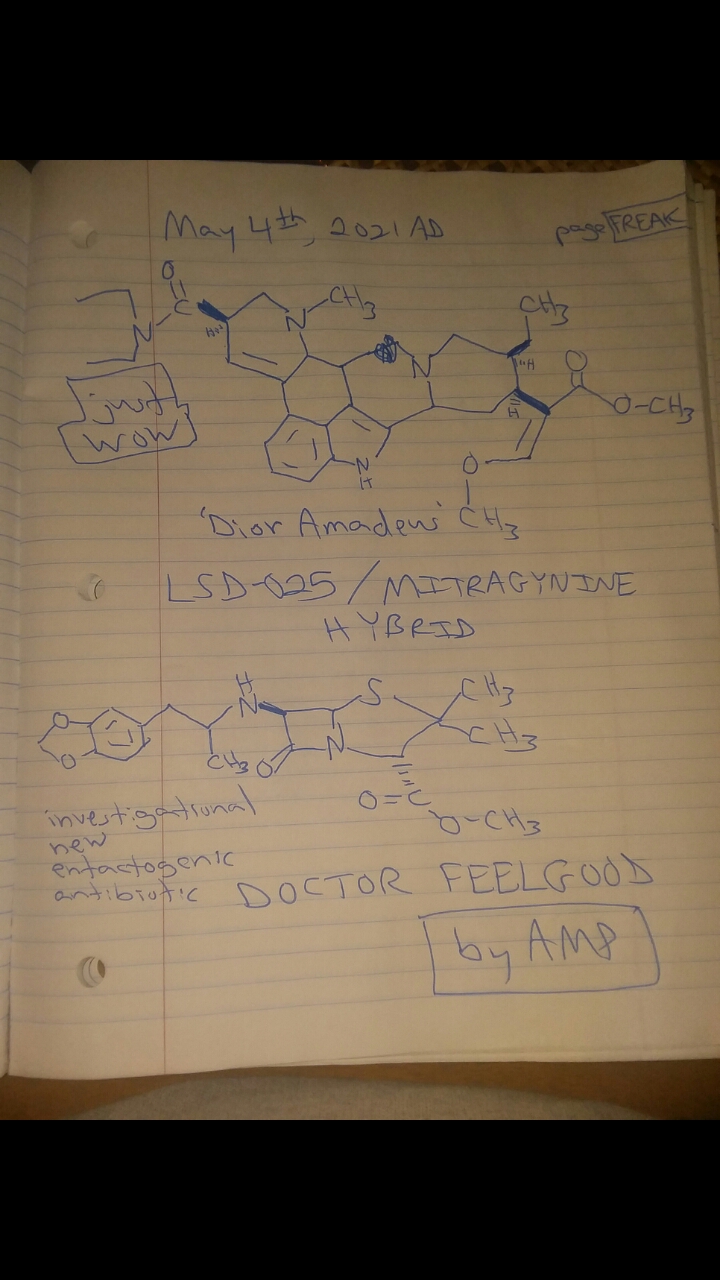 May 4th, 2021 AD
page FREAK
O
C
N
H
N
CH3
N
CH3
H
O
O-CH3
H
just
wow
N
H
O
CH3
'Dior Amadeus'
LSD-025 / MITRAGYNINE
HYBRID
H
N
S
CH3
O
O
CH3
O
N
CH3
O=C
O-CH3
investigational
new
entactogenic
antibiotic
DOCTOR FEELGOOD
by AMP